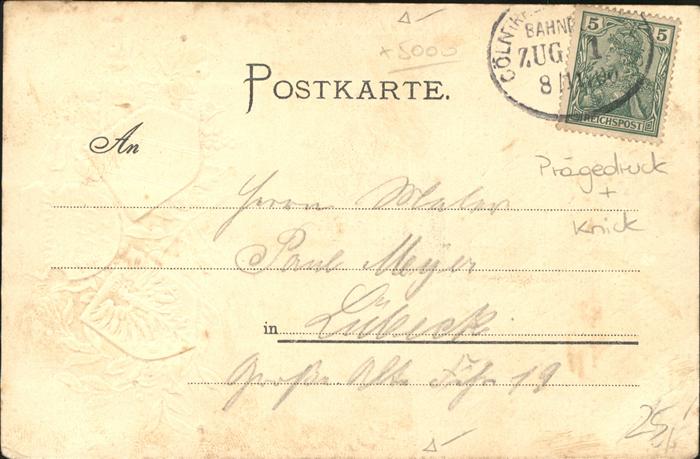 x 5000
CÖLN
BAHNP
ZUG 1
8/
5 5
REICHSPOST
POSTKARTE.
An
Prägedruck
+
Knick
Herrn Maler
Paul Meyer
in Lübeck
Große 19
25,